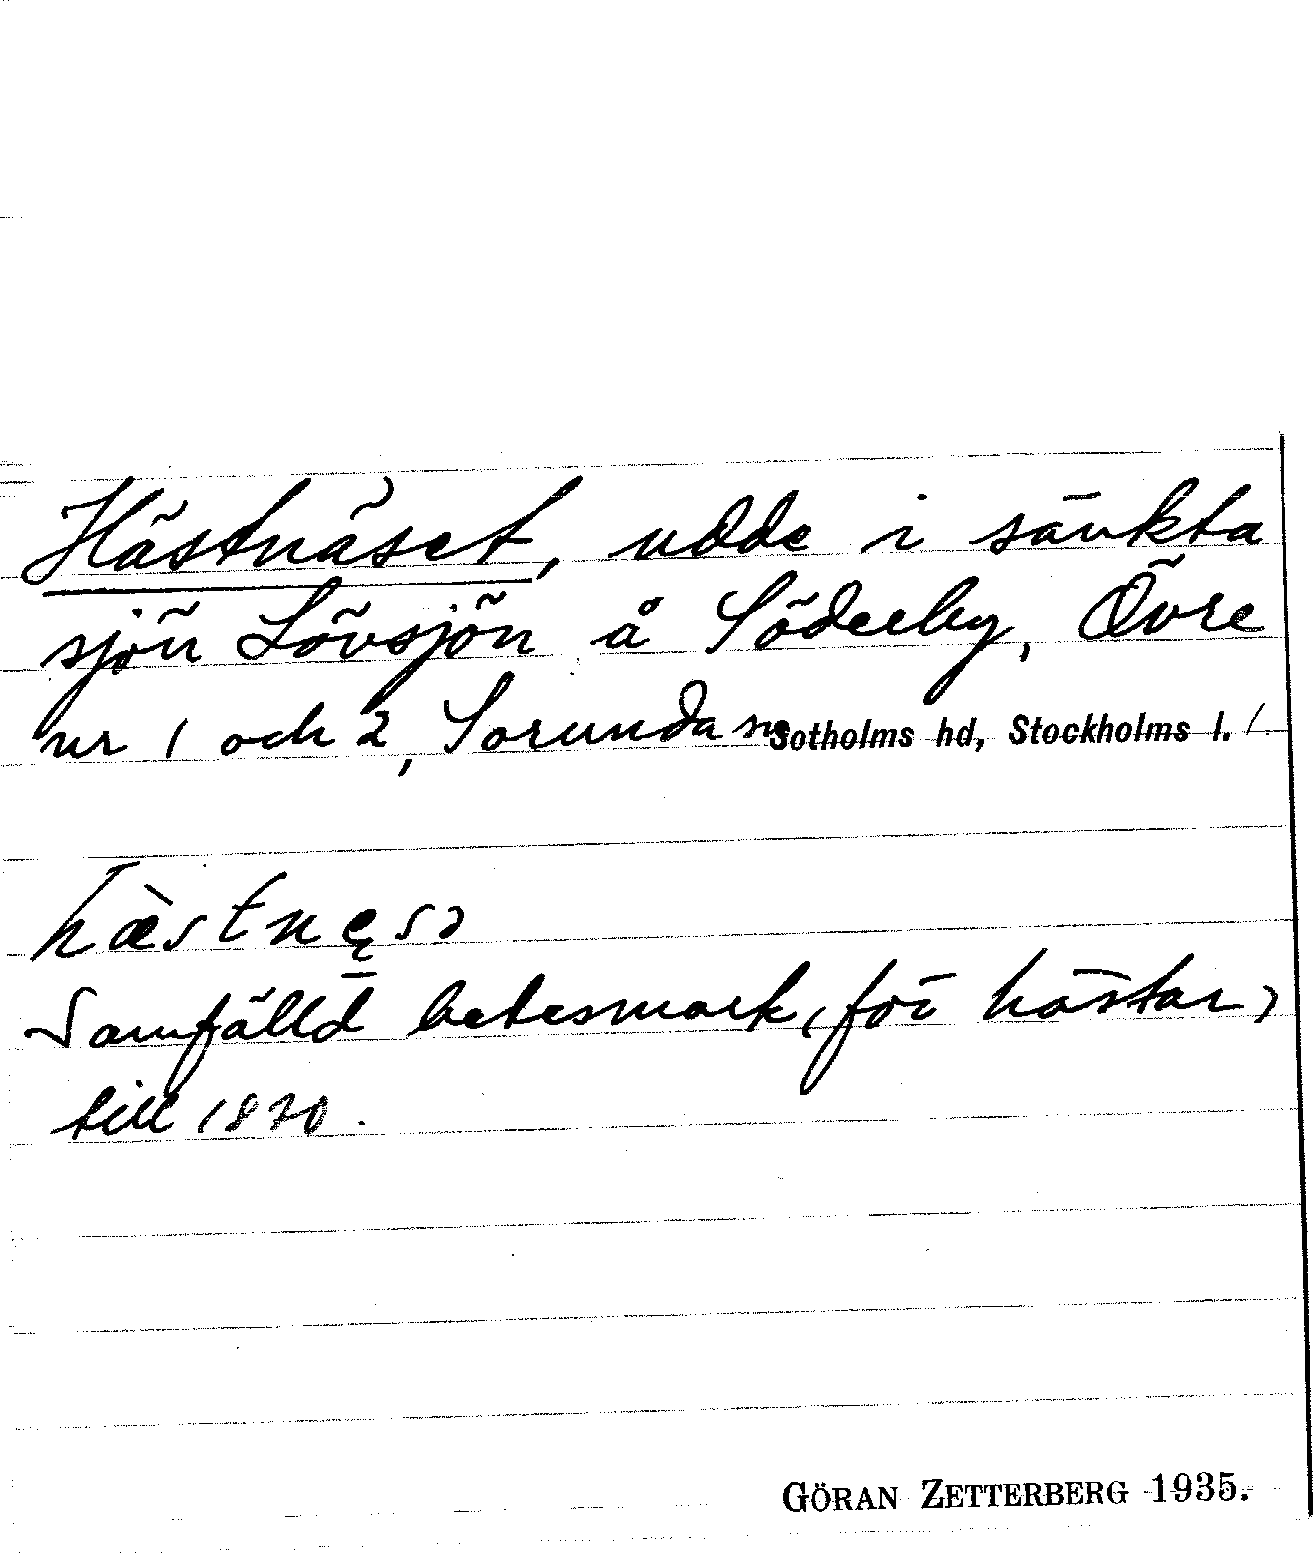 Hästnäset, udde i sänkta
sjön Lövsjön å Söderby, Övre
nr 1 och 2, Sorunda sn Sotholms hd, Stockholms l.
Samfälld betesmark, för hästar,
till 1870.
GÖRAN ZETTERBERG 1935.